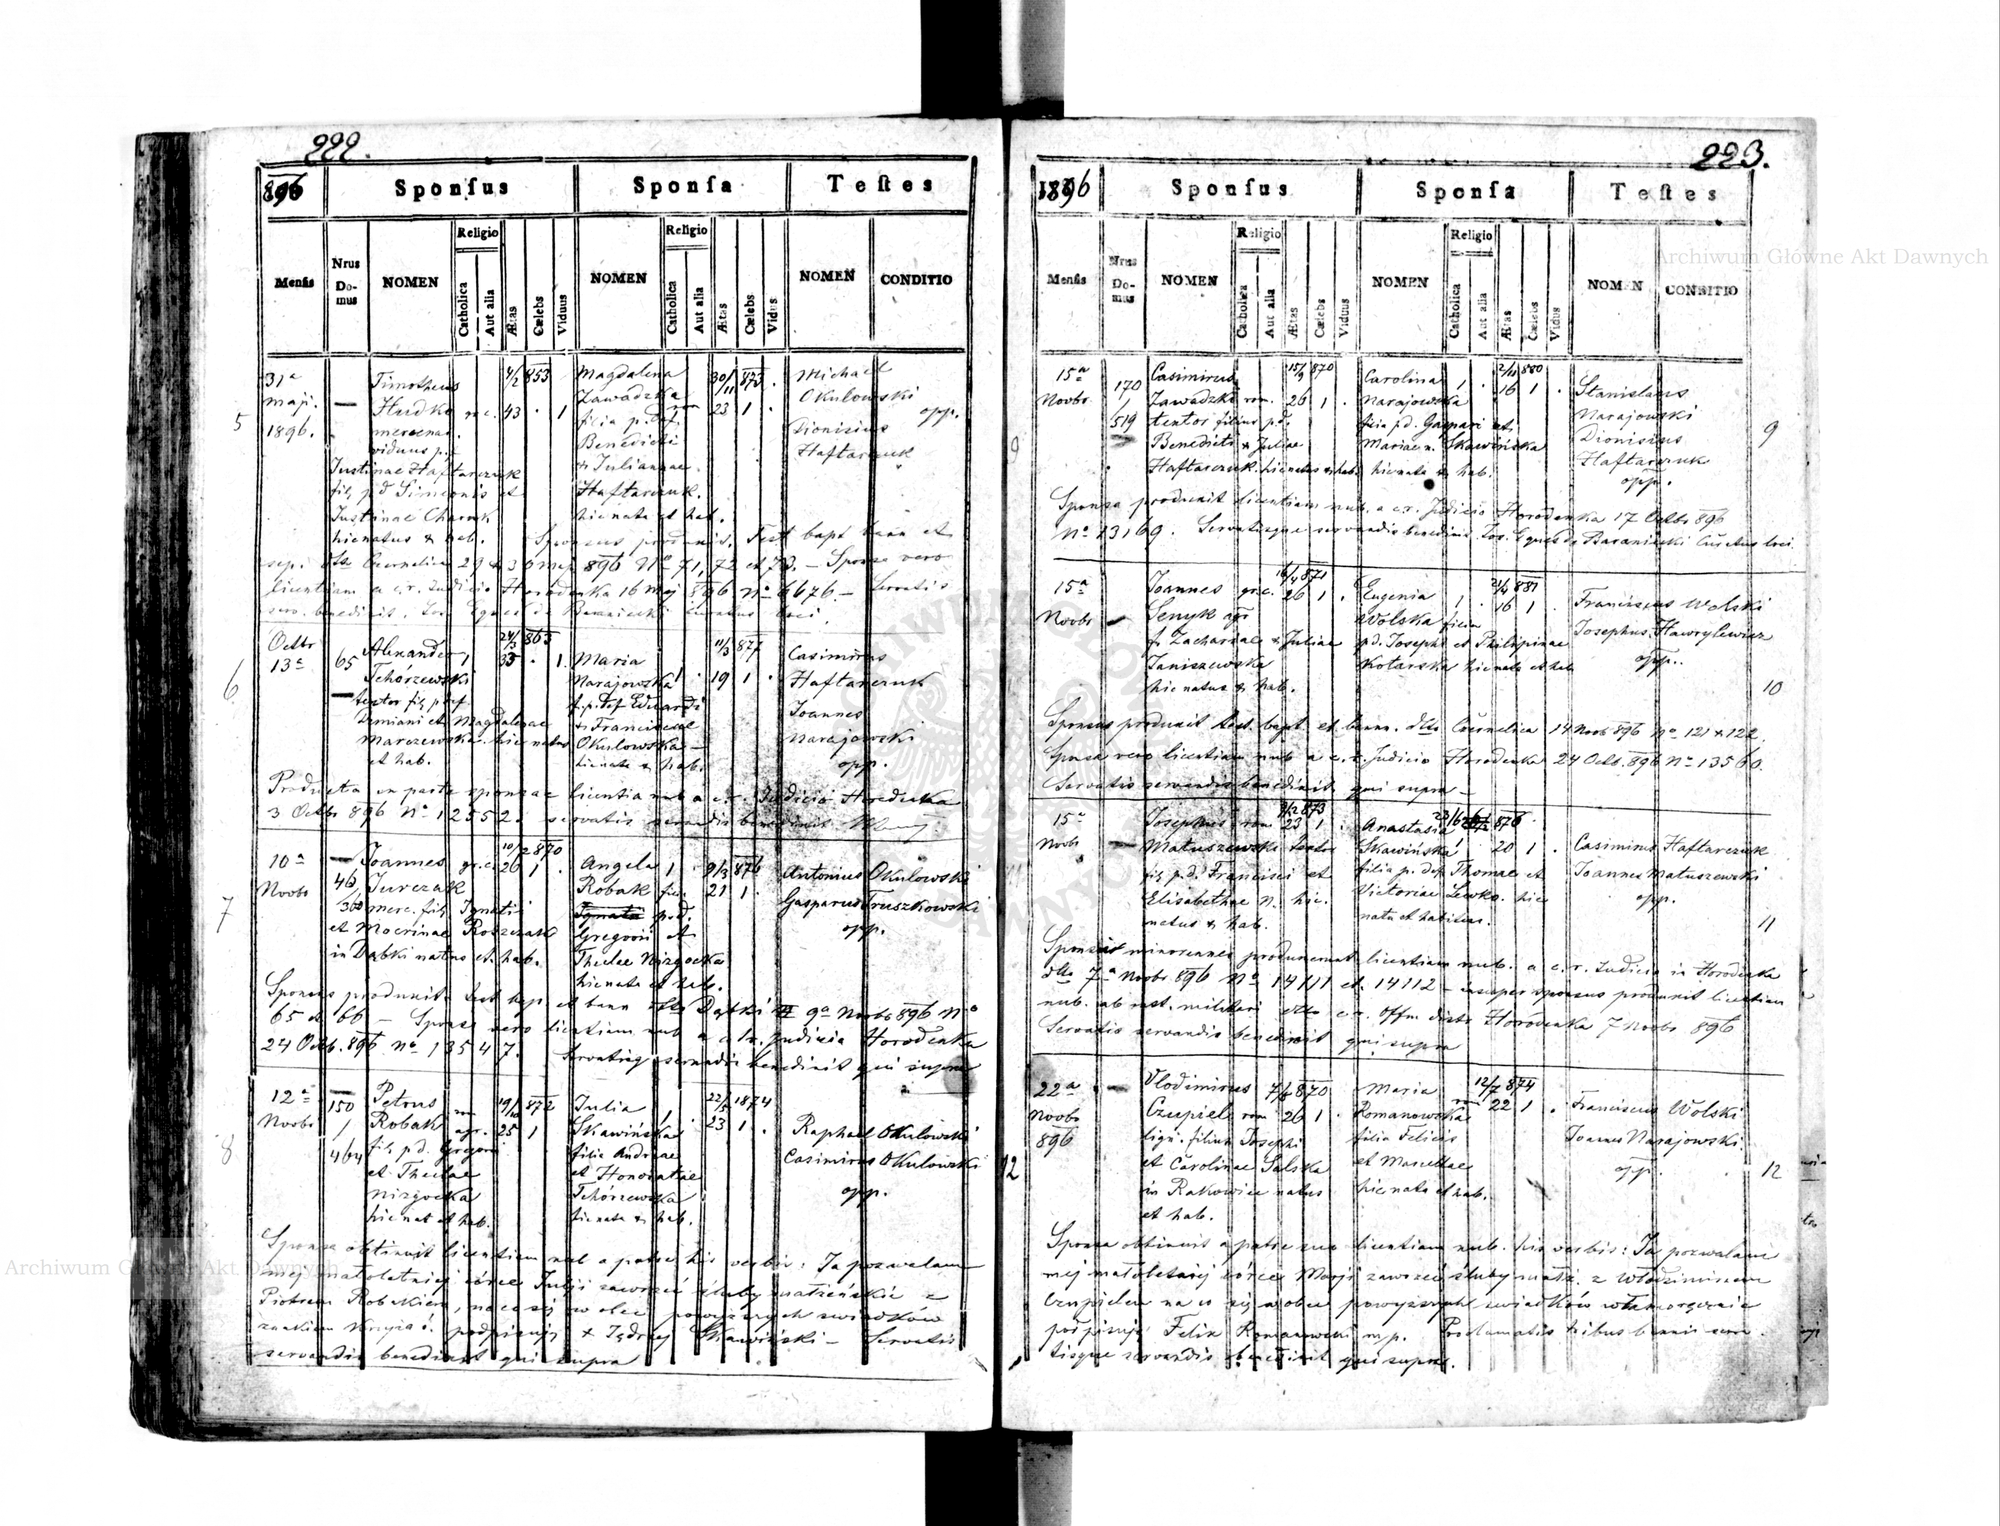 222.
896
Sponſus
Sponſa
Teſtes
Menſis
Nrus Do-mus
NOMEN
Religio
Catholica
Aut alia
Ætas
Cœlebs
Viduus
NOMEN
Religio
Catholica
Aut alia
Ætas
Cœlebs
Vidua
NOMEN
CONDITIO
5
31a Maji. 1896.
Timotheus
Hudko gr.c. 43 1
4/2 853
mercenar.
viduus p.
Justinae Haftarczuk
fil. p d Simeonis et
Justinae
hic natus & hab.
Magdalena
Zawadzka 23 1
30/11 873
filia p. def.
Benedicti
& Juliannae
Haftarczuk.
hic nata et hab.
Michael
Okulowski
opp.
Dionisius
Haftarczuk
Sponsus produxit Test bapt bann et
dto Czernelica 29 & 30 maj 896 No 71, 72 et 73. – Sponsa vero
licentiam a c.r. Judicio Horodenka 16 maj 896 No 6676. – Servatis
serv. benedixit
6
Octbr
13a
65
Alexander
Tchórzewski
textor fil. p def
Damiani et Magdalenae
Marczewska. hic natus
et hab.
24/3 863
33 1
Maria
Narajowska
f. p. def Eduardi
& Franciscae
Okulowska –
hic nata & hab.
11/3 877
19 1
Casimirus
Haftarczuk
Joannes
Narajowski
opp.
Producta ex parte sponsae licentia nub a c.r. Judicio Horodenka
3 Octbr 896 No 12552. servatis servandis benedixit
7
10a
Novbr
46
Joannes gr.c.
Jurczak
merc. fil. Ignati
et Macrinae Roszczak
in Dąbki natus et. hab.
10/2 870
26 1
Angela 1
Robak filia
p.d.
Gregorii et
Theclae Nizgocka
hic nata et hab.
9/3 876
21 1
Antonius Okulowski
Gasparus Truszkowski
opp.
Sponsus produxit test bap. et bann dto Dąbki 9a Novbr 896 No
65 et 66 – Sponsa vero licentiam nub a c.r. Judicio Horodenka
24 Octb. 896 No 13547. Servatisq servandis benedixit qui supra
8
12a
Novbr
150
464
Petrus
Robak agr.
fil. p d. Gregorii
et Theclae
Nizgocka
hic nat et hab.
19/10 872
25 1
Julia
Skawińska
filia Andreae
et Honoratae
Tchórzewska
hic nata & hab.
22/5 1874
23 1
Raphael Okulowski
Casimirus Okulowski
opp.
Sponsa obtinuit licentiam nub a patre his verbis: Ja pozwalam
mej małoletniej córce Julji zawrzeć śluby małżeńskie z
Piotrem Robakiem, na co się w obec powyższych świadków
znakiem krzyża podpisuję + Jędrzej Skawiński – Servatis
servandis benedixit qui supra
223.
1896
Sponſus
Sponſa
Teſtes
Menſis
Nrus Do-mus
NOMEN
Religio
Catholica
Aut alia
Ætas
Cœlebs
Viduus
NOMEN
Religio
Catholica
Aut alia
Ætas
Cœlebs
Vidua
NOMEN
CONDITIO
9
15a
Novbr
170
519
Casimirus
Zawadzki rom.
textor filius p.d.
Benedicti & Juliae
Haftarczuk. hic natus & hab.
15/9 870
26 1
Carolina 1
Narajowska
filia p.d. Gaspari et
Mariae n. Skawińska
hic nata & hab.
2/11 880
16 1
Stanislaus
Narajowski
Dionisius
Haftarczuk
opp.
9
Sponsa produxit licentiam nub. a c.r. Judicio Horodenka 17 Octbr 896
No 13,169. Servatisque servandis benedixit Jos. Eques de Baraniecki Curatus loci.
15a
Novbr
Joannes gr.c.
Senyk agr
f. Zachariae & Juliae
Janiszewska
hic natus & hab.
16/4 871
26 1
Eugenia 1
Wolska filia
p.d. Josephi et Philippinae
Kotarska hic nata et hab
21/4 881
16 1
Franciscus Wolski
Josephus Hawrylewicz
opp.
10
Sponsus produxit test. bapt. et bann. dto Czernelica 14 Novb 896 No 121 & 122.
Sponsa vero licentiam nub a c.r. Judicio Horodenka 24 Octb. 896 No 13560.
Servatis servandis benedixit qui supra –
15a
Novb
Josephus rom
Matuszewski textor
fil. p.d. Francisci et
Elisabethae N. hic.
natus & hab.
9/2 873
23 1
Anastasia
Skawińska
filia p. def Thomae et
Victoriae Lewko. hic
nata et habitans.
876
20 1
Casimirus Haftarczuk
Joannes Matuszewski
opp.
11
Sponsi minorennes produxerunt licentiam nub. a c.r. Judicio in Horodenka
dto 7a Novbr 896 No 14111 et 14112 – insuper sponsus produxit licentiam
nub. ab inst. militari dto c.r. Offm distr Horodenka 7 Novbr 896
Servatis servandis benedixit qui supra
12
22a
Novbr
896
Vlodimirus
Czupiel rom
filius Josephi
et Carolinae Salska
in Rakowiec natus
et hab.
7/6 870
26 1
Maria
Romanowska
filia Felicis
et Marcellae
hic nata et hab.
12/7 874
rom 22 1
Franciscus Wolski
Joannes Narajowski
opp.
12
Sponsa obtinuit a patre suo licentiam nub. his verbis: Ja pozwalam
mej małoletniej córce Marji zawrzeć śluby małż. z Włodzimirem
Czupielem na co się w obec powyższych świadków własnoręcznie
podpisuję Felix Romanowski mp. Proclamatis tribus bannis serva-
tisque servandis benedixit qui supra.
Archiwum Główne Akt Dawnych
Archiwum Główne Akt Dawnych